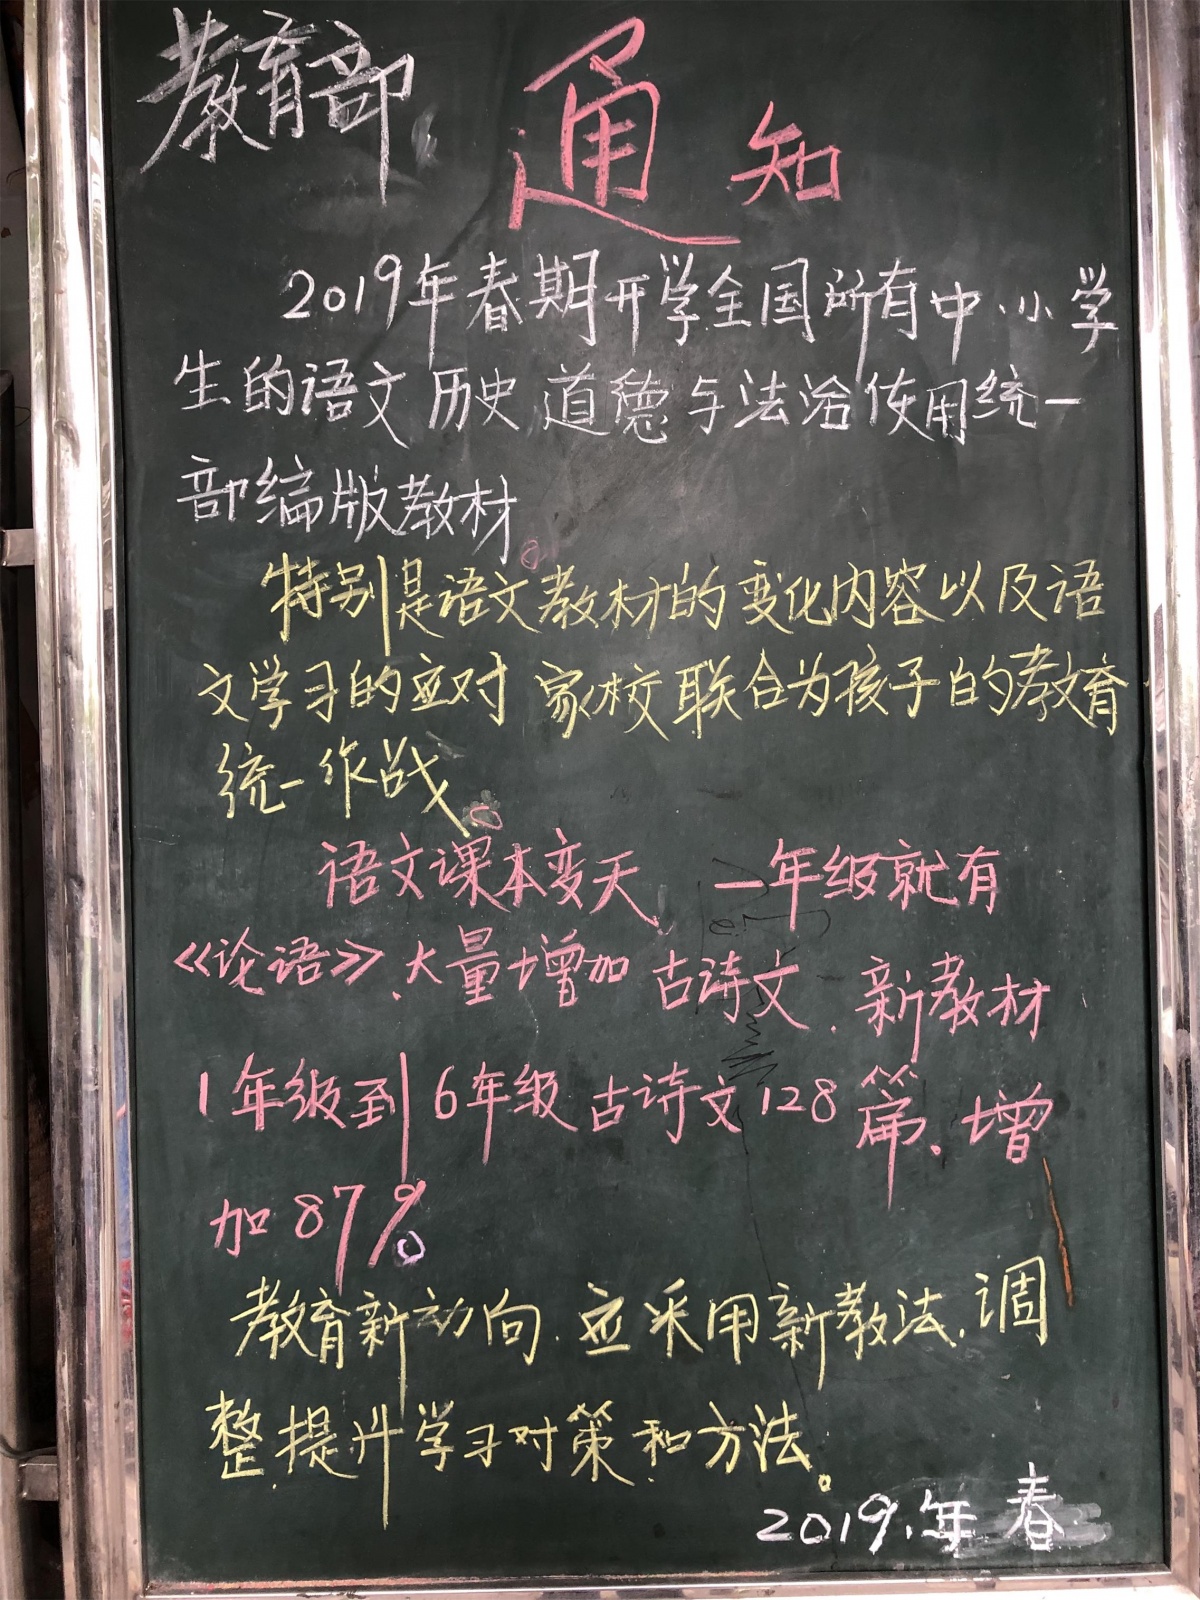 教育部 通知
2019年春期开学全国所有中.小学
生的语文 历史 道德与法治使用统一
部编版教材。
特别是语文教材的变化内容以及语
文学习的应对 家校联合为孩子的教育
统一作战。
语文课本变天 一年级就有
《论语》.大量增加 古诗文.新教材
1年级到6年级古诗文128篇.增
加87%。
教育新动向.应采用新教法.调
整.提升学习对策和方法。
2019.年春